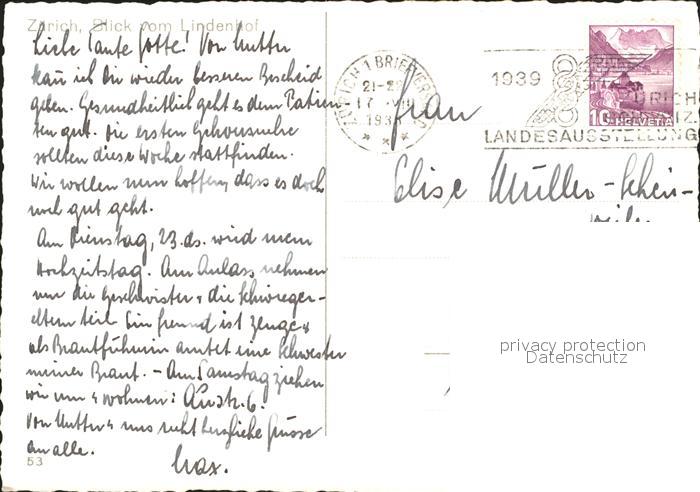 Zürich, Blick vom Lindenhof
Liebe Tante Gotte! Von Mutter
kann ich Dir wieder besseren Bescheid
geben. Gesundheitlich geht es dem Patien-
ten gut. Die ersten Gehversuche
sollten diese Woche stattfinden.
Wir wollen nun hoffen, dass es doch
noch gut geht.
Am Dienstag, 23. ds. wird mein
Hochzeitstag. Am Anlass nehmen
nur die Geschwister & die Schwieger-
eltern teil. Ein Freund ist Zeuge &
als Brautführerin amtet eine Schwester
meiner Braut. - Am Samstag ziehen
wir um & wohnen: 6.
Von Mutter & uns recht herzliche Grüsse
an alle.
Max.
53
ZÜRICH 1 BRIEFVERS
21-22
17. VIII
193
1939
ZÜRICH
LANDESAUSSTELLUNG
10 HELVETIA
Frau
Elise Müller-Schen-
privacy protection
Datenschutz